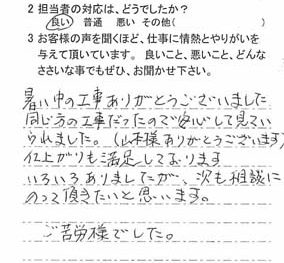 2 担当者の対応は、どうでしたか？
良い 普通 悪い その他( )
3 お客様の声を聞くほど、仕事に情熱とやりがいを
与えて頂いています。良いこと、悪いこと、どんな
ささいな事でもぜひ、お聞かせ下さい。
暑い中の工事ありがとうございました
同じ方の工事だったので安心して見てい
られました。(山本様ありがとうございます)
仕上がりも満足しております
いろいろありましたが、次も相談に
のって頂きたいと思います。
ご苦労様でした。